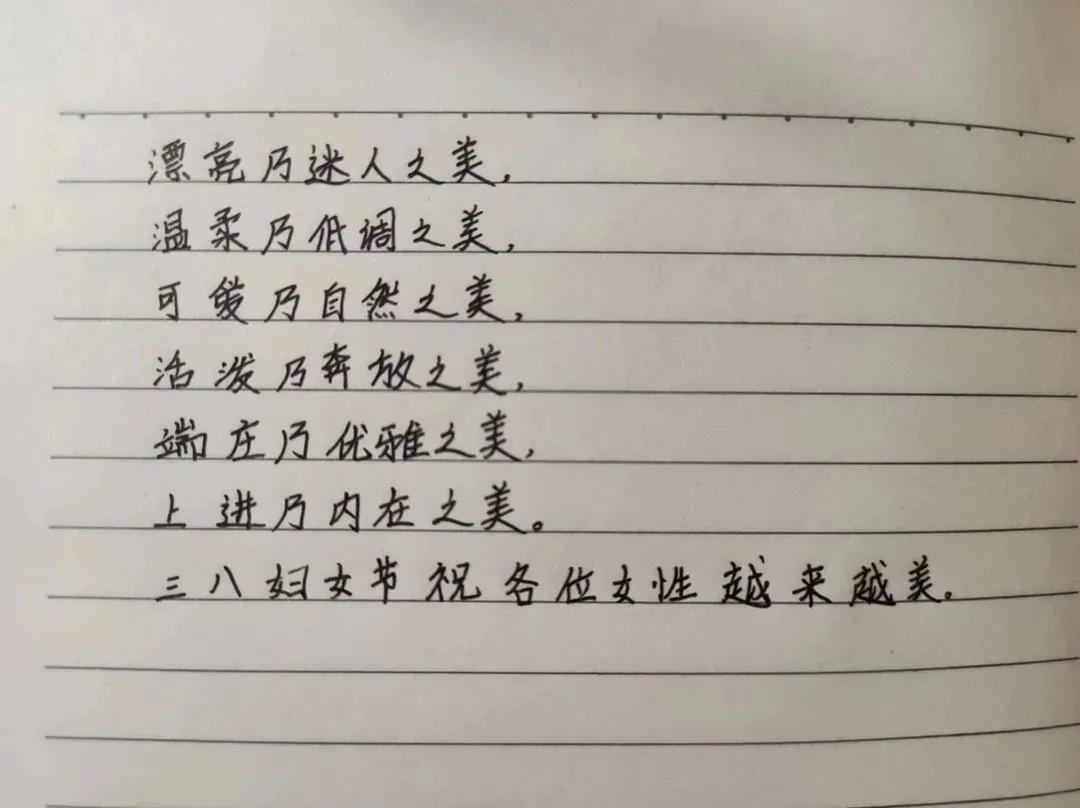 漂亮乃迷人之美,
温柔乃低调之美,
可爱乃自然之美,
活泼乃奔放之美,
端庄乃优雅之美,
上进乃内在之美。
三八妇女节祝各位女性越来越美.